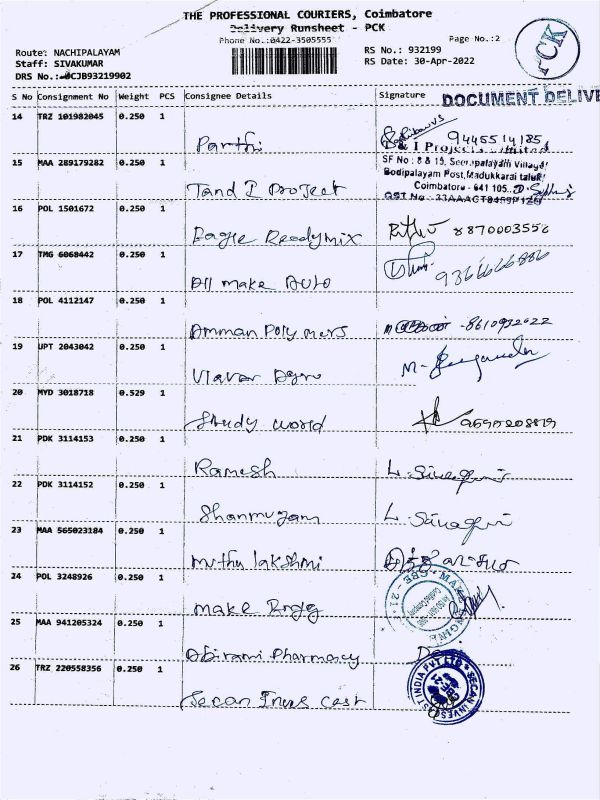 THE PROFESSIONAL COURIERS, Coimbatore
Delivery Runsheet - PCK
Phone No.:0422-3505555
Page No.:2
PCK
Route: NACHIPALAYAM
RS No.: 932199
Staff: SIVAKUMAR
RS Date: 30-Apr-2022
DRS No.: CJB93219902
S No Consignment No Weight PCS Consignee Details Signature
DOCUMENT DELIVE
14 TRZ 101982045 0.250 1 Parthi 9445514185
15 MAA 289179282 0.250 1 Tand I Project
SF No : 8 & 15, Seerapalayam Village
Bodipalayam Post, Madukkarai taluk
Coimbatore - 641 105.
16 POL 1501672 0.250 1 Eagle Readymix 8870003556
17 TMG 6068442 0.250 1 All make Auto
18 POL 4112147 0.250 1 Amman Polymers 8610932022
19 UPT 2043042 0.250 1
20 MYD 3018718 0.529 1 Study world
21 PDK 3114153 0.250 1 Ramesh
22 PDK 3114152 0.250 1 Shanmugam
23 MAA 565023184 0.250 1 muthu lakshmi
24 POL 3248926 0.250 1 make
25 MAA 941205324 0.250 1 Abirami Pharmacy
26 TRZ 220558356 0.250 1 Secan Invescast
SECAN INVESCAST INDIA PVT LTD